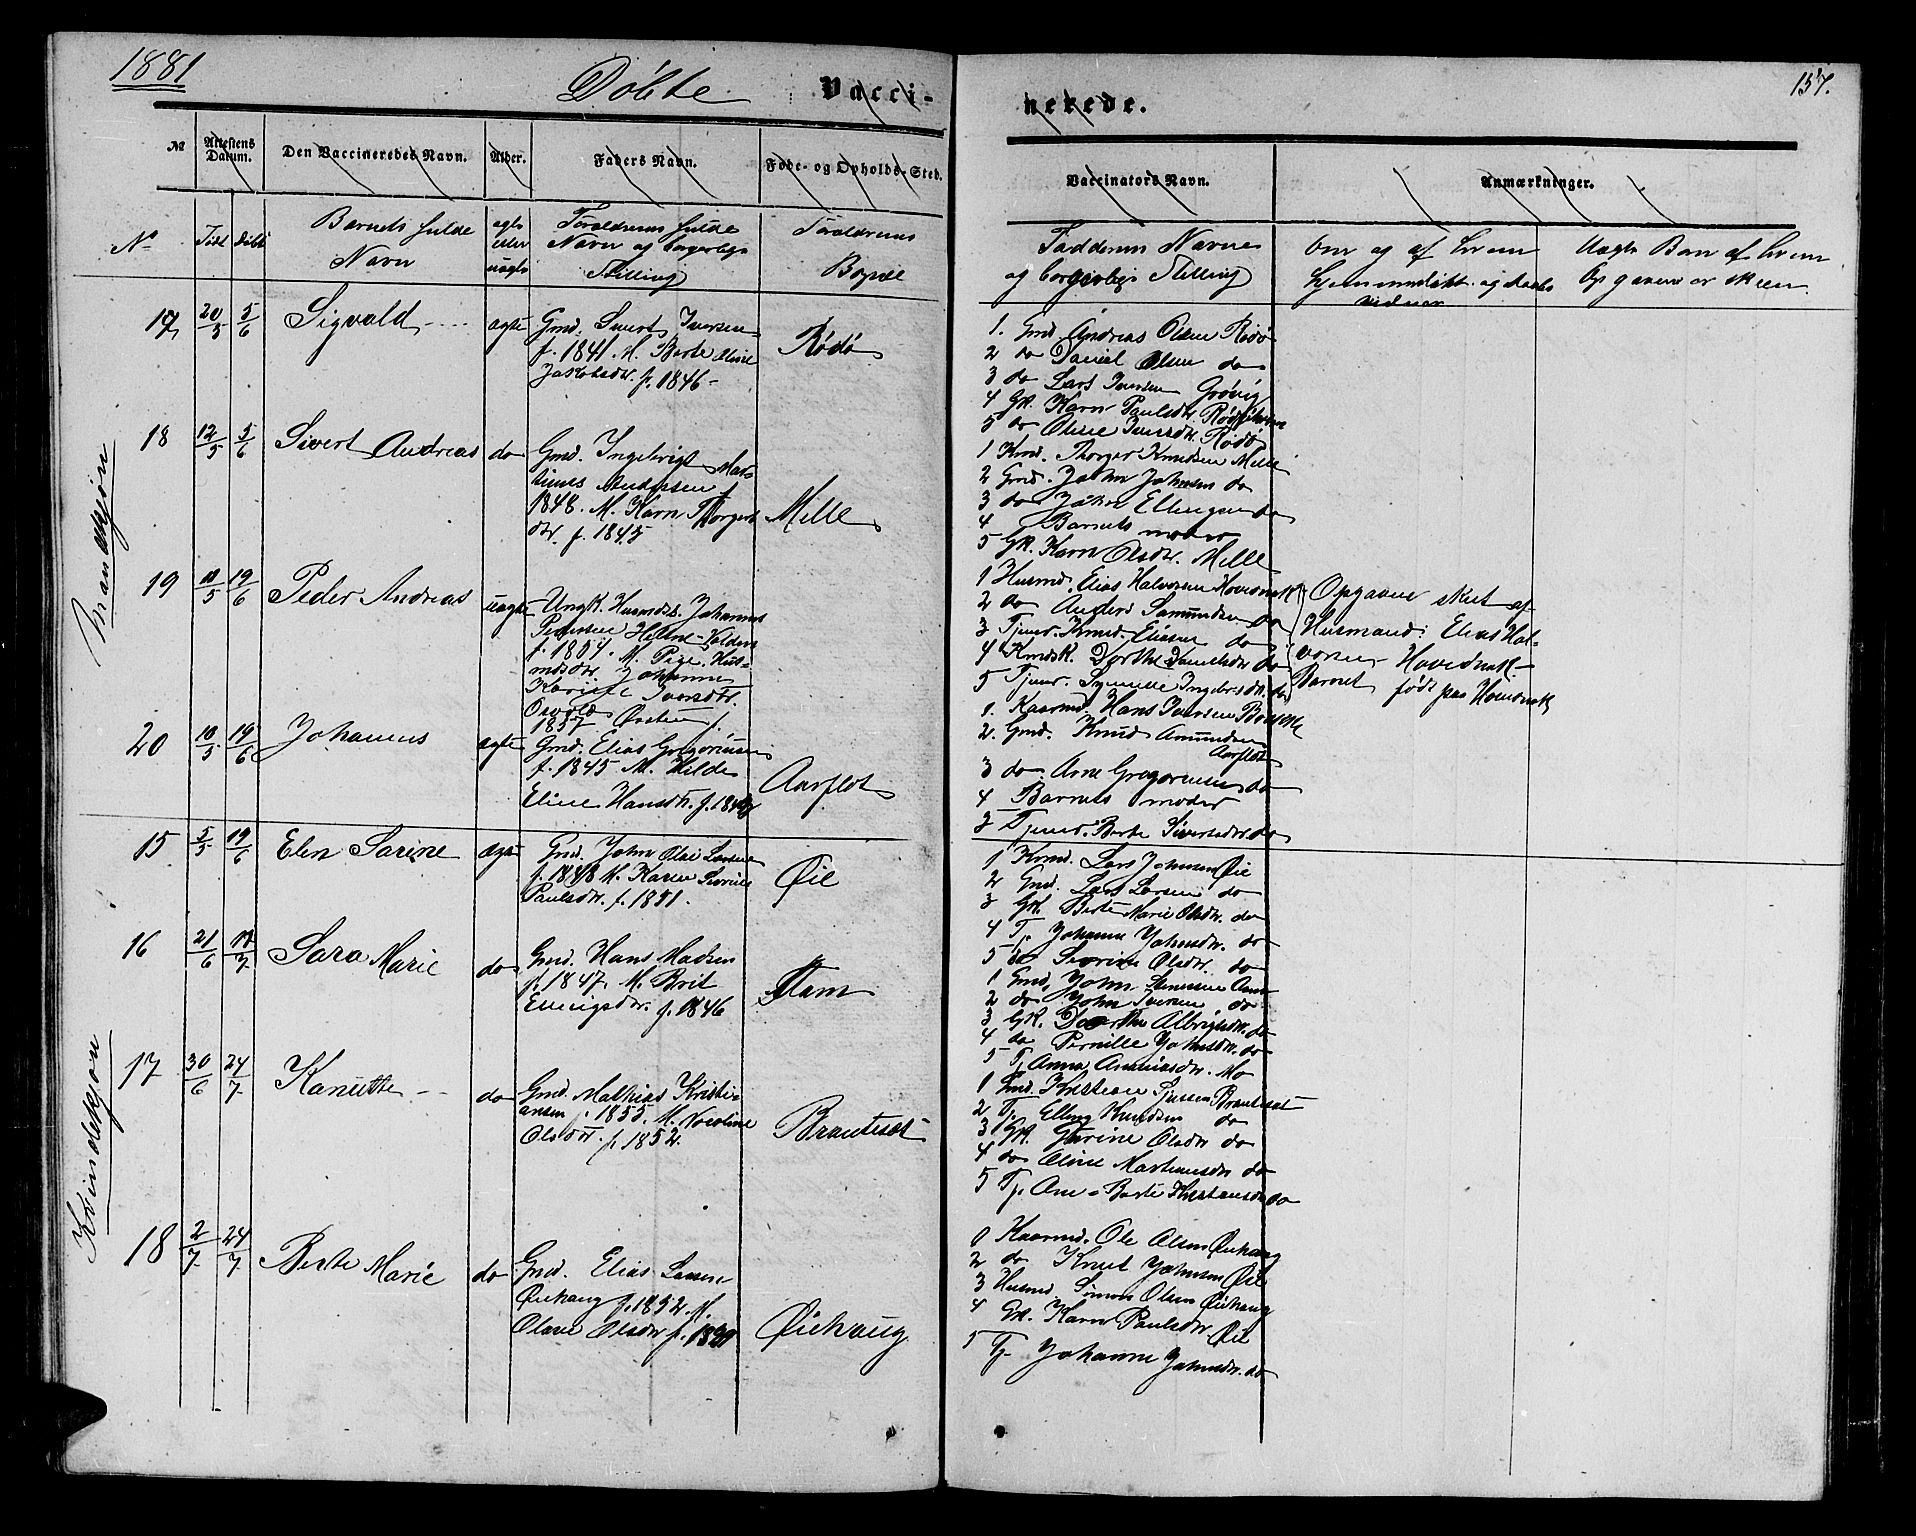 1881
Døbte Vacci-
nerede.
157.
№ Attestens Datum. Den Vaccineredes Navn. Alder. Faders Navn. Føde- og Opholds-Sted.
Vaccinators Navn. Anmærkninger.
No Født Døbt Barnets fulde Navn ægte eller uægte Forældrenes fulde Navn og borgerlige Stilling Forældrenes Bopæl
Faddernes Navne og borgerlige Stilling
Om og af hvem Hjemmedøbt og Daabsvidner
Uægte Barn af hvem Opgaven er skeen.
Mandkjøn
17 20/5 5/6 Sigvald ægte Gmd. Sivert Iversen
f. 1841. M. Berte Oline
Jakobsdtr. f. 1846 -
Rødø
1. Gmd Andreas Olsen Rødø
2 do Daniel Olsen do
3 do Lars Iversen Grøvig
4 Gk. Karn Paulsdtr.
5 do Oline Iversdtr. Rødø
18 12/5 5/6 Sivert Andreas do Gmd. Ingebrigt Mar-
tinus Andersen f.
1848. M. Karn Thorgers
dtr. f. 1845
Mille
1 Kmd. Thorger Knudsen Mille
2 Gmd. John Johnsen do
3 do John Ellingsen do
4 Barnets moder
5 Gk. Karn Olsdtr. Mille
19 10/5 19/6 Peder Andreas uægte Ungk. Husmds. Johannes
Pettersen Helene-Volden
f. 1857. M. Pige, Hus-
mdsdtr. Johanne
Karine Iversdtr.
Osvold Ørsten f.
1857
1 Husmd. Elias Halvorsen Hovdenak
2 do Anders Samundsen do
3 Tjener. Knud Eliasen do
4 Kmdsk. Dorthe Danielsdtr do
5 Tjener. Synneve Ingebrigtsdtr. do
Opgaven skeet af
Husmand Elias Hal-
vorsen Hovdenak
Barnet født paa Hovdenak
20 10/5 19/6 Johannes ægte Gmd. Elias Gregoriusen
f. 1845 M. Hilde
Eline Hansdtr. f.
Aarflot
1. Kaarmd. Hans Iversen
2. Gmd. Knud Amundsen
Aarflot
3 do. Arne Gregoriusen do
4 Barnets moder
5 Tjener. Berte Sivertsdtr. do
Kvindekjøn
15 5/5 19/6 Elen Sarine ægte Gmd. John Olai Larsen
f. 1848 M. Karen Severine
Paulsdtr. f. 1851.
Øie
1 Kmd. Lars Johnsen Øie
2 Gmd. Lars Larsen do
3 Gk. Berte Marie Olsdtr. do
4 Tj. Johanne Johnsdtr. do
5 do Severine Olsdtr. do
16 21/6 17/7 Sara Marie do Gmd. Hans Madsen
f. 1847, M. Brit
Ellingsdtr. f. 1846
Aam
1 Gmd. John
2 do John Iversen do
3 Gk. Dorthe Albrigtsdtr. do
4 do Pernille Johnsdtr. do
5 Tj. Anna Mo
17 30/6 24/7 Kanutte - do Gmd. Mathias Kristi-
ansen f. 1855. M. Nicoline
Olsdtr. f. 1852
Brauteset
1 Gmd. Kristian Brauteset
2 Tj. Elling Knudsen do
3 Gk. Olsdtr do
4 do Oline Martinusdtr do
5 Tj. Ane-Berte Kristiansdtr do
18 2/7 24/7 Berte Marie do Gmd. Elias Larsen
Øiehaug f. 1852. M.
Olave Olsdtr f.
Øiehaug
1 Kaarmd. Ole Olsen Øiehaug
2 do Knut Johnsen Øie
3 Husmd. Simon Olsen Øiehaug
4 Gk. Karn Paulsdtr. Øie
5 Tj. Johanne Johnsdtr. do